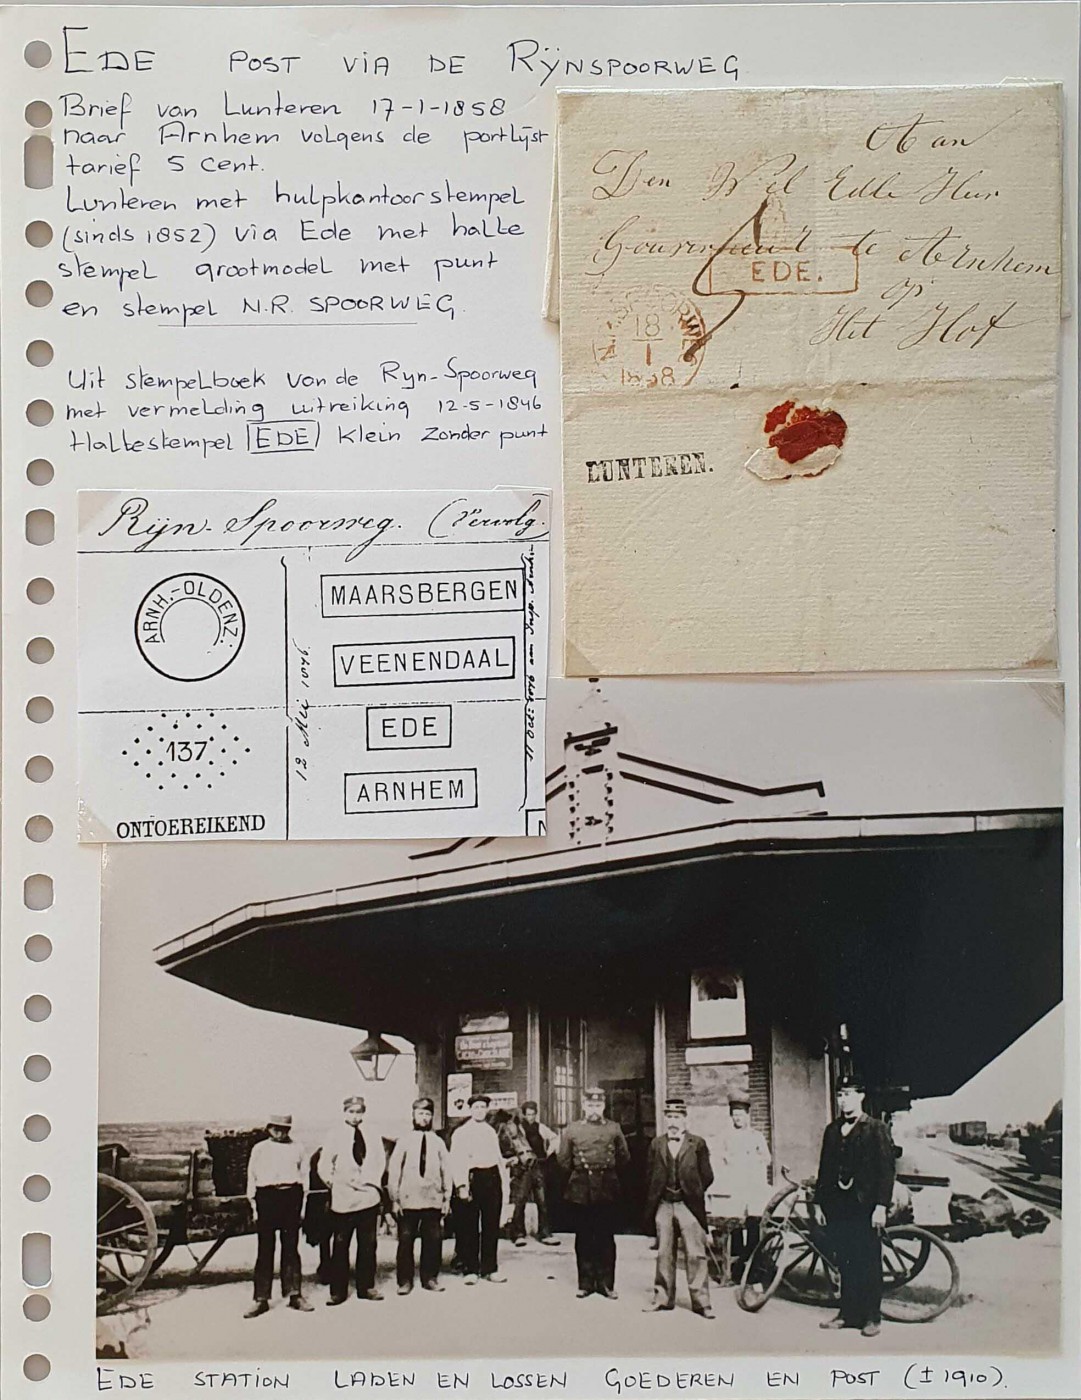 EDE POST VIA DE RIJNSPOORWEG
Brief van Lunteren 17-1-1858
naar Arnhem volgens de portlijst
tarief 5 cent.
Lunteren met hulpkantoorstempel
(sinds 1852) via Ede met halte
stempel grootmodel met punt
en stempel N.R. SPOORWEG.
Uit stempelboek van de Ryn-Spoorweg
met vermelding uitreiking 12-5-1846
Haltestempel EDE klein zonder punt
Aan
Den Wel Edele Heer
Gouverneur te Arnhem
op
Het Hof
5
EDE.
N.R. SPOORWEG
18
1
1858
LUNTEREN.
Rijn-Spoorweg. (Vervolg.
ARNH.-OLDENZ:
137
ONTOEREIKEND
12 Mei 1846.
MAARSBERGEN
VEENENDAAL
EDE
ARNHEM
EDE STATION LADEN EN LOSSEN GOEDEREN EN POST (± 1910).